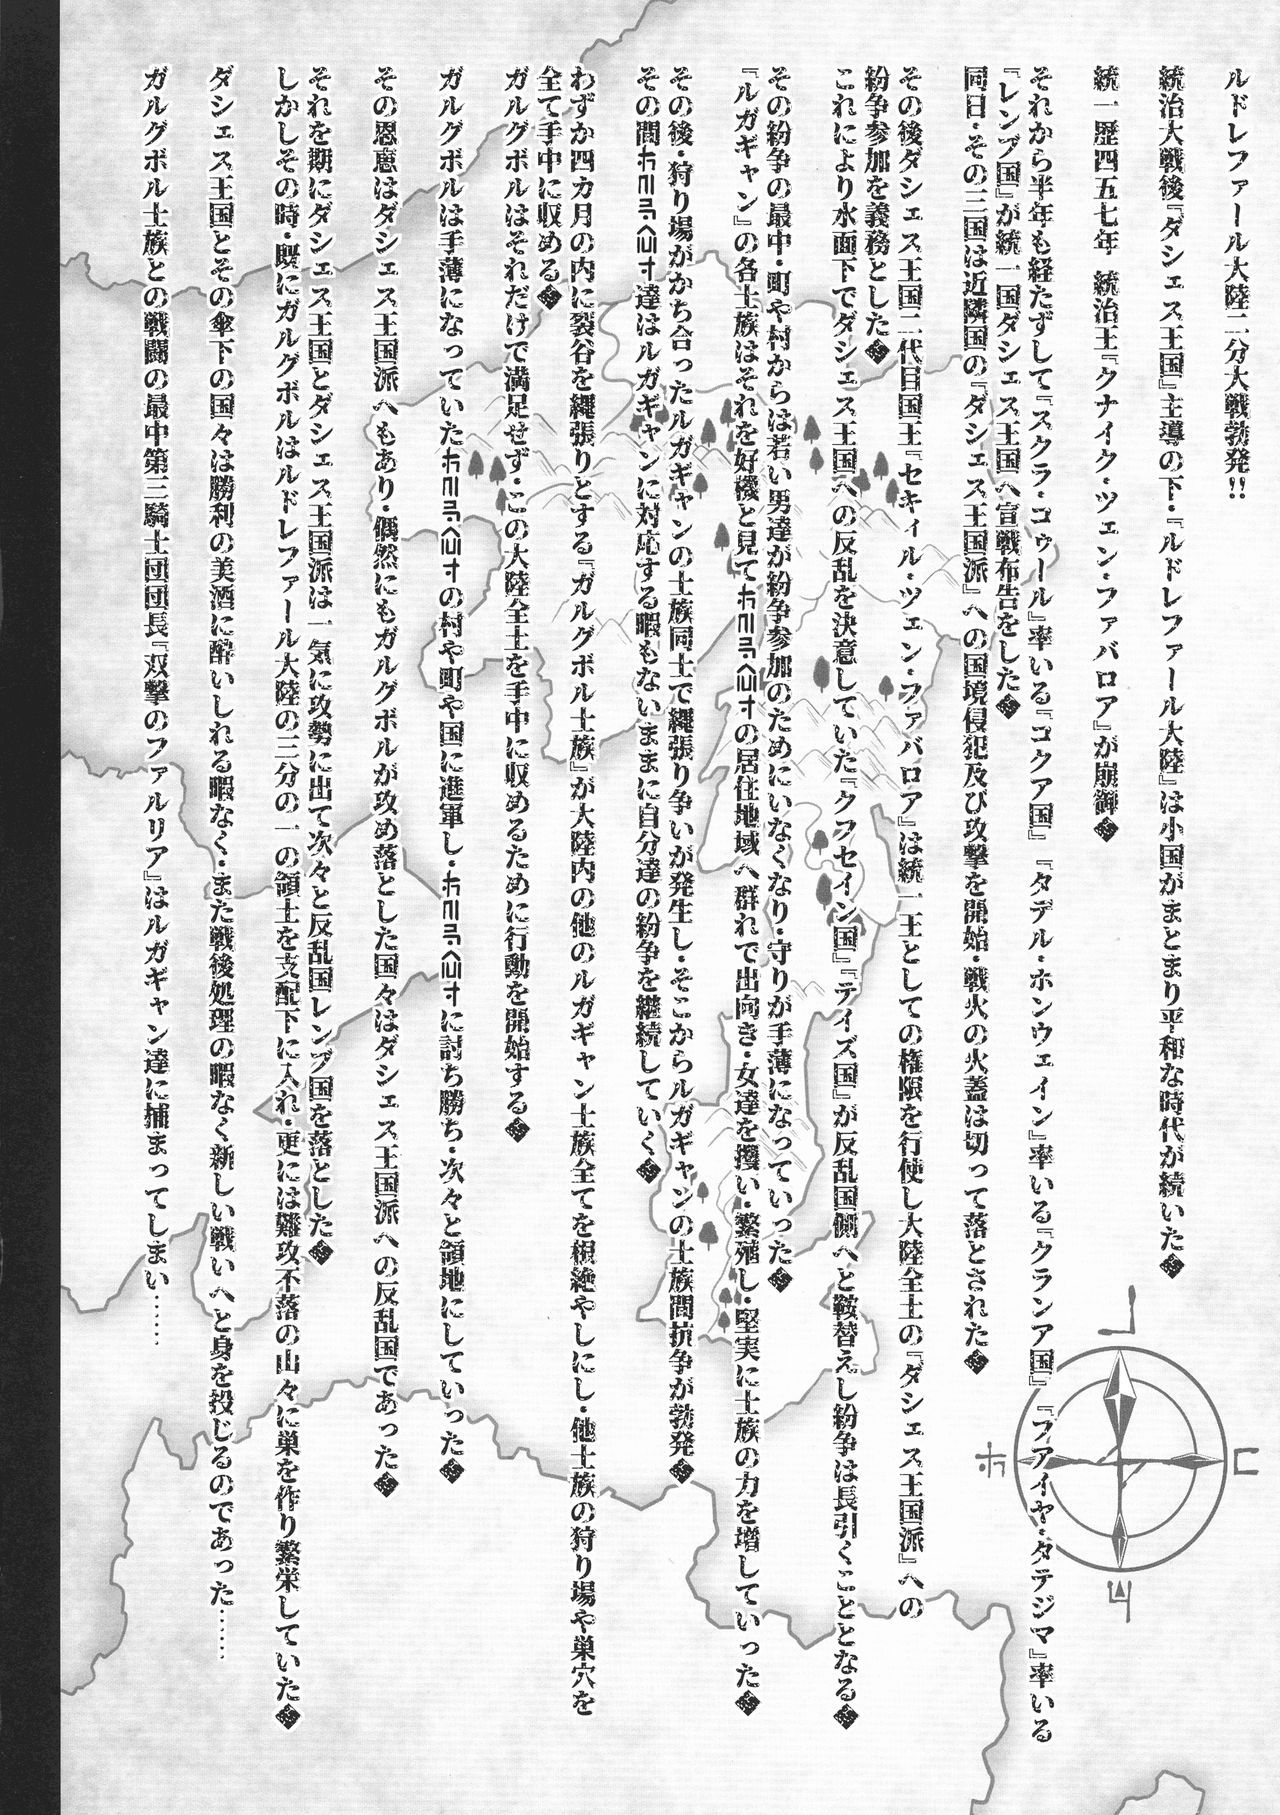 ルドレファール大陸二分大戦勃発!!
統治大戦後『ダシェス王国』主導の下・『ルドレファール大陸』は小国がまとまり平和な時代が続いた◆
統一歴四五七年 統治王『クナイク・ツェン・ファバロア』が崩御◆
それから半年も経たずして『スクラ・コゥール』率いる『コクア国』『タデル・ホンウェイン』率いる『クランア国』『フアイヤ・タテジマ』率いる
『レンブ国』が統一国ダシェス王国へ宣戦布告をした◆
同日・その三国は近隣国の『ダシェス王国派』への国境侵犯及び攻撃を開始・戦火の火蓋は切って落とされた◆
その後ダシェス王国二代目国王『セキィル・ツェン・ファバロア』は統一王としての権限を行使し大陸全土の『ダシェス王国派』への
紛争参加を義務とした◆
これにより水面下でダシェス王国への反乱を決意していた『クフセイン国』『テイズ国』が反乱国側へと鞍替えし紛争は長引くこととなる◆
その紛争の最中・町や村からは若い男達が紛争参加のためにいなくなり・守りが手薄になっていった◆
『ルガギャン』の各士族はそれを好機と見ての居住地域へ群れで出向き・女達を攫い・繁殖し・堅実に士族の力を増していった◆
その後・狩り場がかち合ったルガギャンの士族同士で縄張り争いが発生し・そこからルガギャンの士族間抗争が勃発◆
その間達はルガギャンに対応する暇もないままに自分達の紛争を継続していく◆
わずか四カ月の内に裂谷を縄張りとする『ガルグボル士族』が大陸内の他のルガギャン士族全てを根絶やしにし・他士族の狩り場や巣穴を
全て手中に収める◆
ガルグボルはそれだけで満足せず・この大陸全土を手中に収めるために行動を開始する◆
ガルグボルは手薄になっていたの村や町や国に進軍し・に討ち勝ち・次々と領地にしていった◆
その恩恵はダシェス王国派へもあり・偶然にもガルグボルが攻め落とした国々はダシェス王国派への反乱国であった◆
それを期にダシェス王国とダシェス王国派は一気に攻勢に出て次々と反乱国レンブ国を落とした◆
しかしその時・既にガルグボルはルドレファール大陸の三分の一の領土を支配下に入れ・更には難攻不落の山々に巣を作り繁栄していた◆
ダシェス王国とその傘下の国々は勝利の美酒に酔いしれる暇なく・また戦後処理の暇なく新しい戦いへと身を投じるのであった……
ガルグボル士族との戦闘の最中第三騎士団団長『双撃のファルリア』はルガギャン達に捕まってしまい……